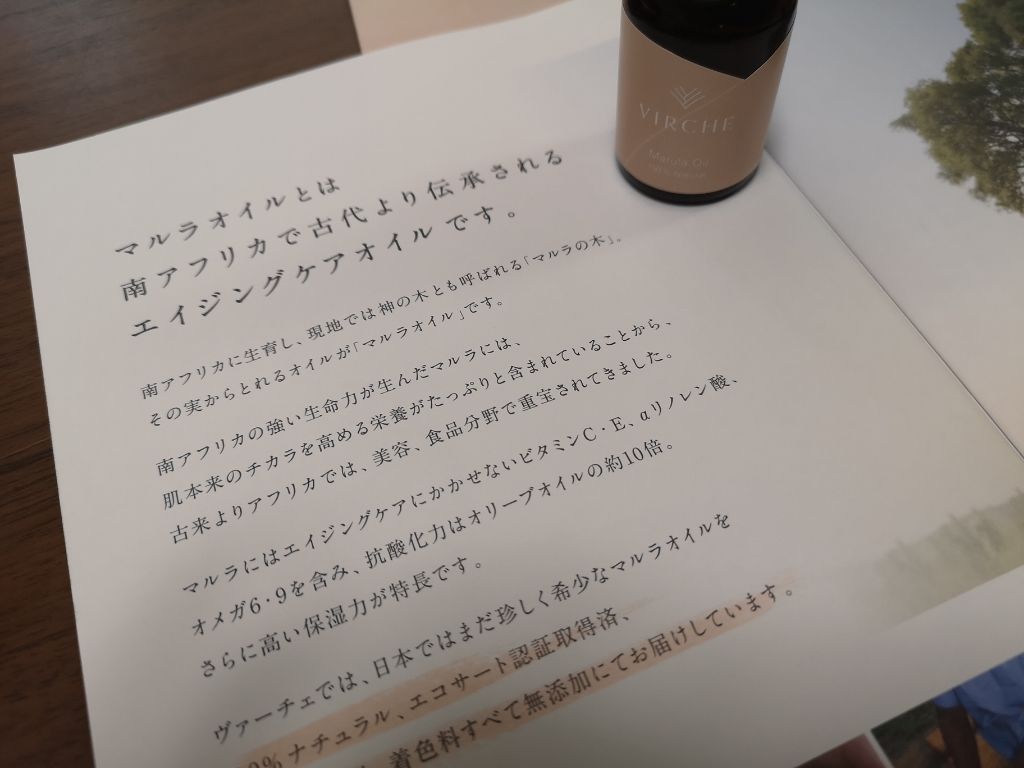 VIRCHE
Marula Oil
マルラオイルとは
南アフリカで古代より伝承される
エイジングケアオイルです。
南アフリカに生育し、現地では神の木とも呼ばれる「マルラの木」。
その実からとれるオイルが「マルラオイル」です。
南アフリカの強い生命力が生んだマルラには、
肌本来のチカラを高める栄養がたっぷりと含まれていることから、
古来よりアフリカでは、美容、食品分野で重宝されてきました。
マルラにはエイジングケアにかかせないビタミンC・E、αリノレン酸、
オメガ6・9を含み、抗酸化力はオリーブオイルの約10倍。
さらに高い保湿力が特長です。
ヴァーチェでは、日本ではまだ珍しく希少なマルラオイルを
0% ナチュラル、エコサート認証取得済、
着色料すべて無添加にてお届けしています。